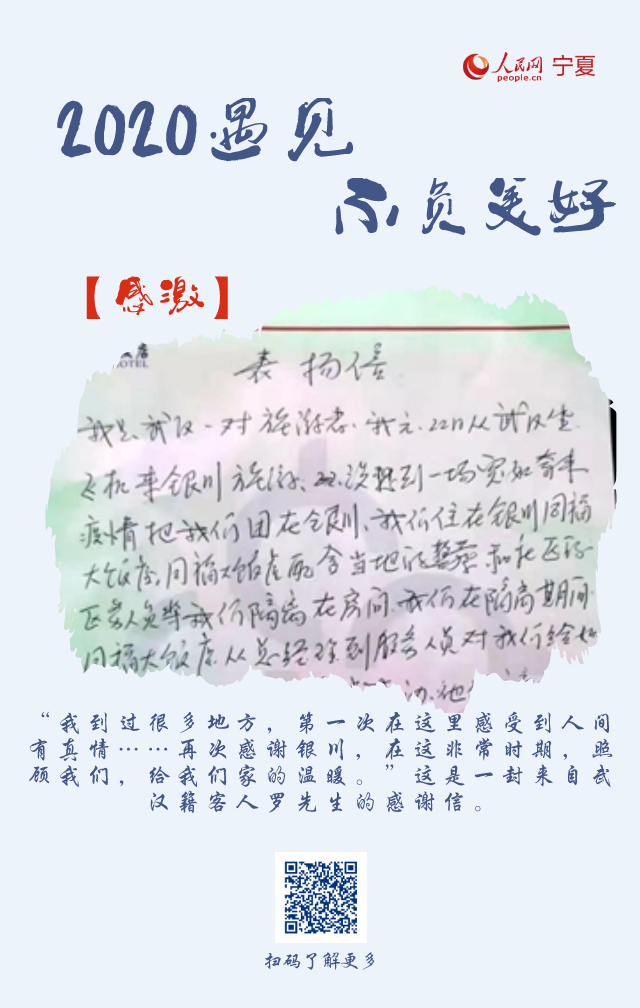 人民网 宁夏
people.cn
2020遇见
不负美好
【感激】
HOTEL
表扬信
我是武汉一对旅游者.我元.22日从武汉坐
飞机来银川旅游、
疫情把我们困在银川、我们住在银川同福
大饭店.同福大饭店配合当地的 和社区的
人员 我们隔离在房间.我们在隔离期间
同福大饭店从总经理到服务人员对我们给
“我到过很多地方，第一次在这里感受到人间
有真情……再次感谢银川，在这非常时期，照
顾我们，给我们家的温暖。”这是一封来自武
汉籍客人罗先生的感谢信。
扫码了解更多